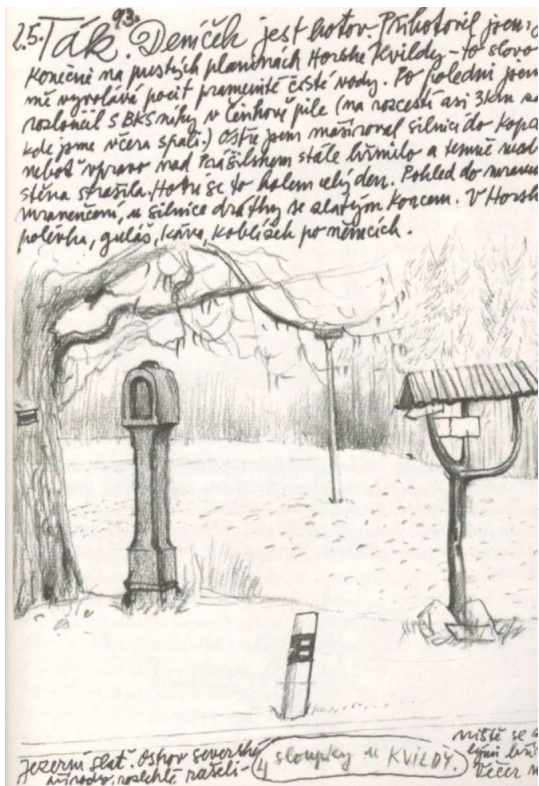 2.5. 93. Ták. Deníček jest hotov. Přihotovil jsem
konečně na pustých planinách Horské Kvildy - to slovo
mě vyvolává pocit pramenité čisté vody. Po poledni jsem
rozloučil s BKSmíky v Čeňkově pile (na rozcestí asi 3km
kde jsme včera spali.) Ostře jsem mašíroval silnicí do kopce
neboť vpravo nad Prášilskem stále hřmilo a temně
stěna strašila. Hotví se to kolem celý den. Pohled do
mraveničení, u silnice dráthy se slavým koncem. V Horsk
polévka, guláš, káva, koblížek po němcích.
Jezerní slať. Ostrov severské
přírody, rozlehlé rašeli-
4 sloupky u KVILDY.
niště se
Večer